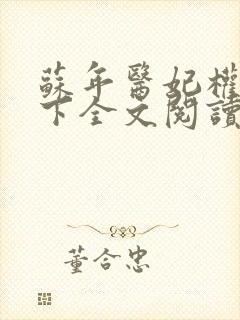 蘇年醫妃權
下全文閱讀
董合忠